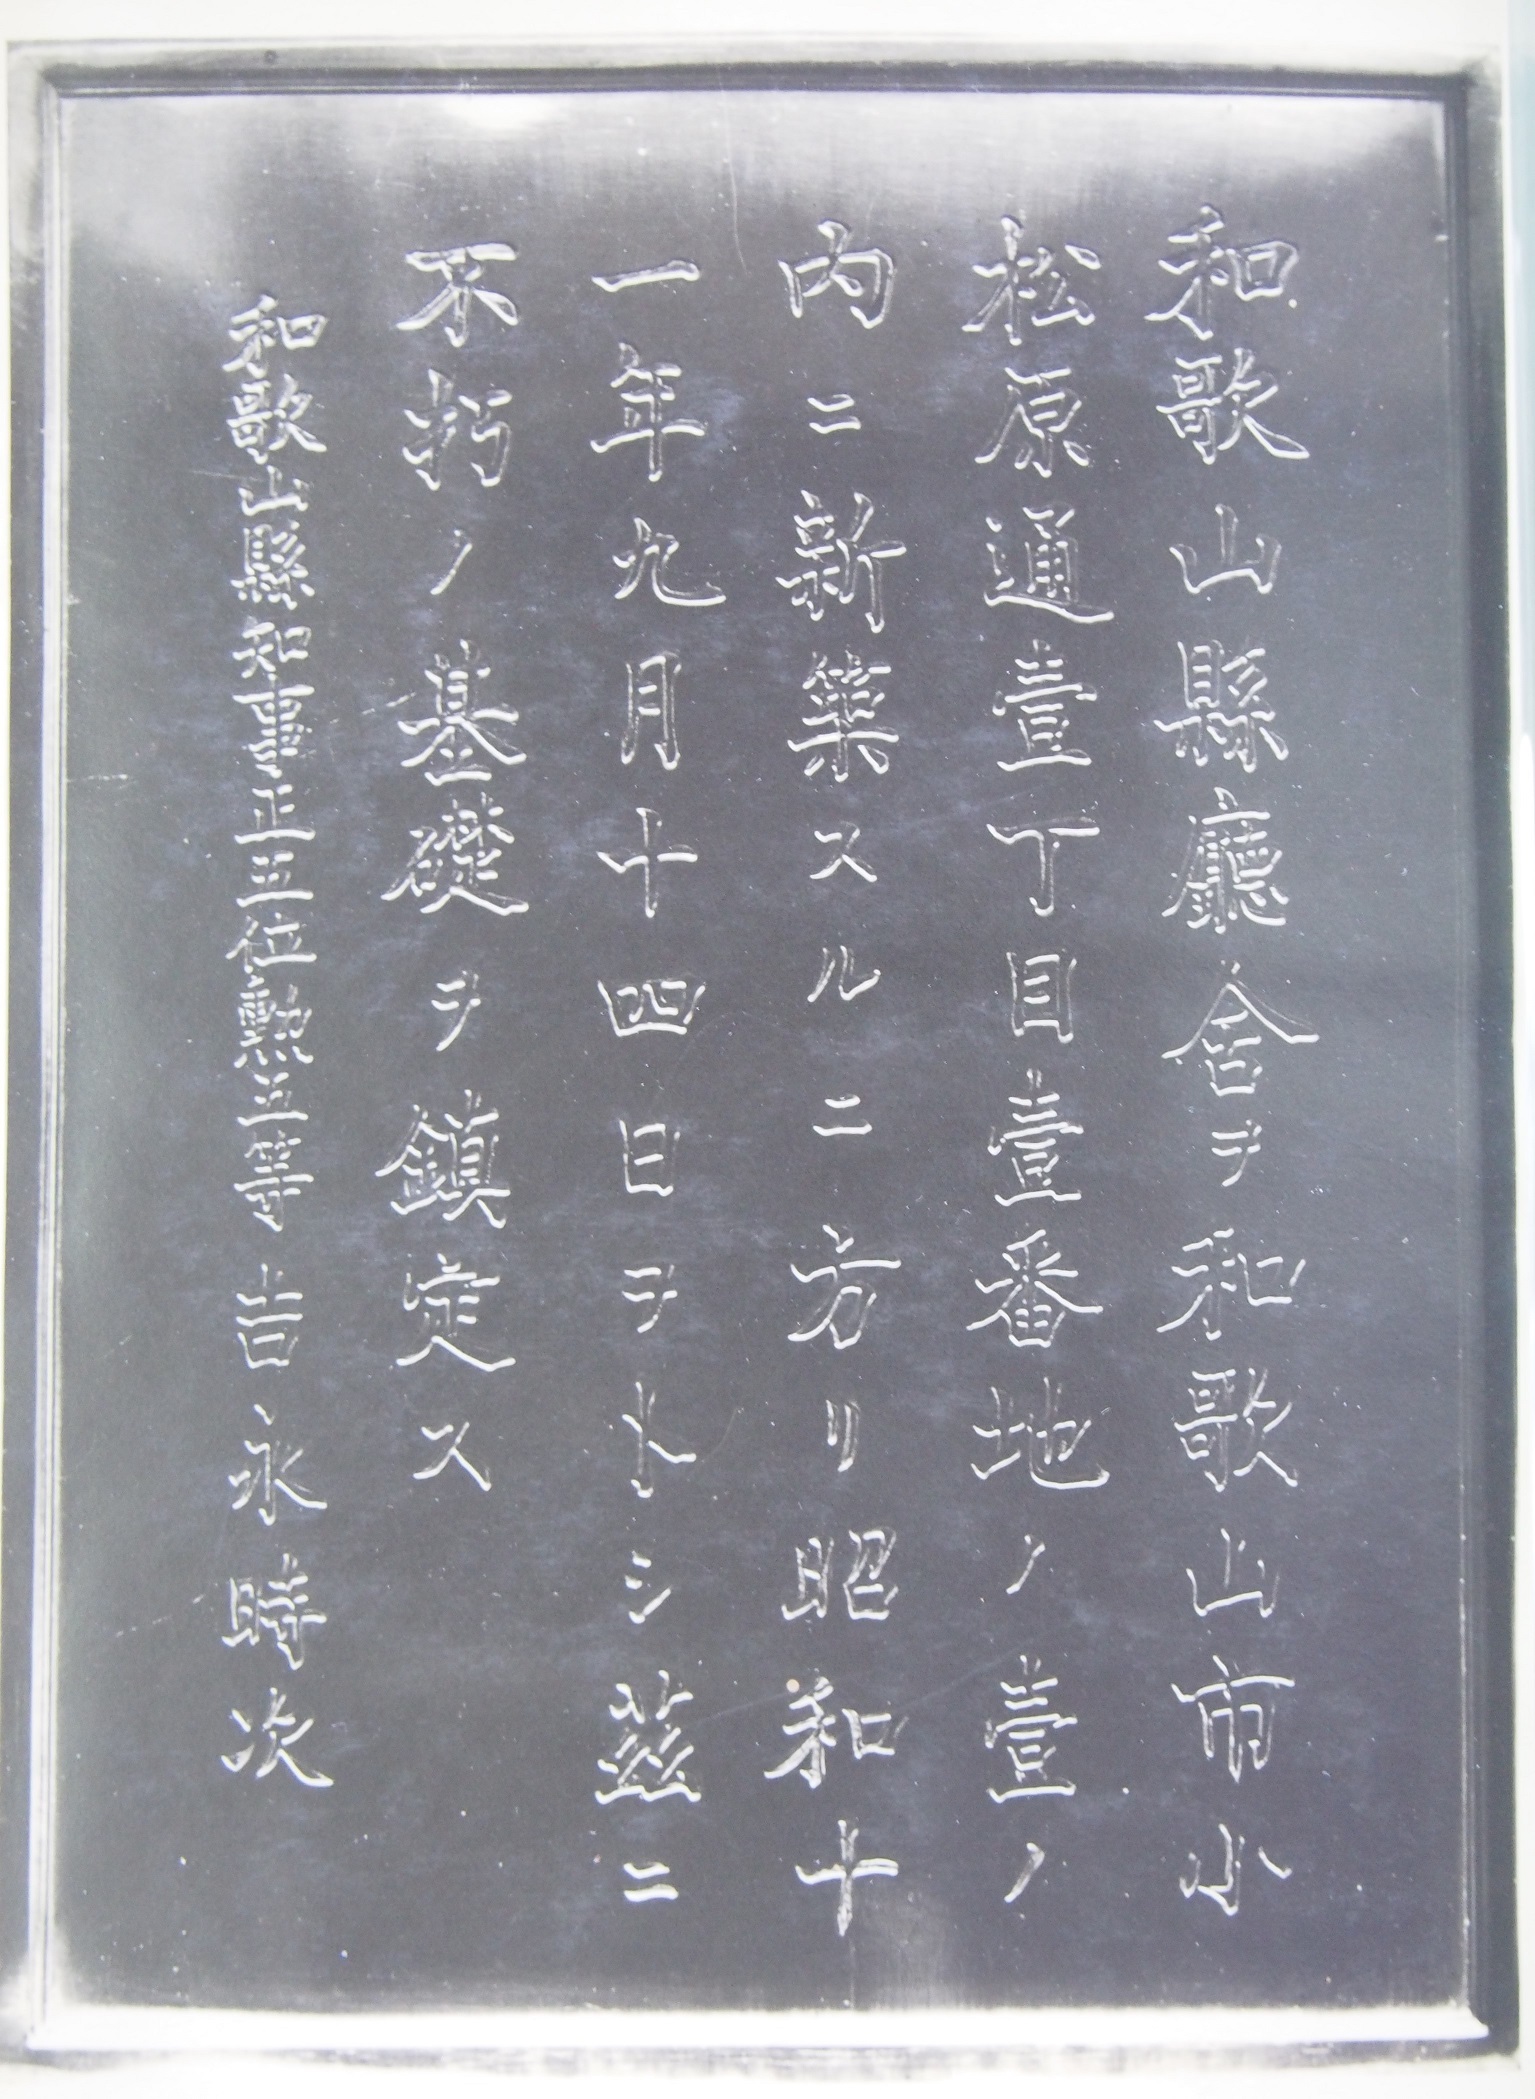 和歌山縣廳舎ヲ和歌山市小
松原通壹丁目壹番地ノ壹ノ
内ニ新築スルニ方リ昭和十
一年九月十四日ヲトシ茲ニ
不朽ノ基礎ヲ鎮定ス
和歌山縣知事正五位勲五等吉永時次